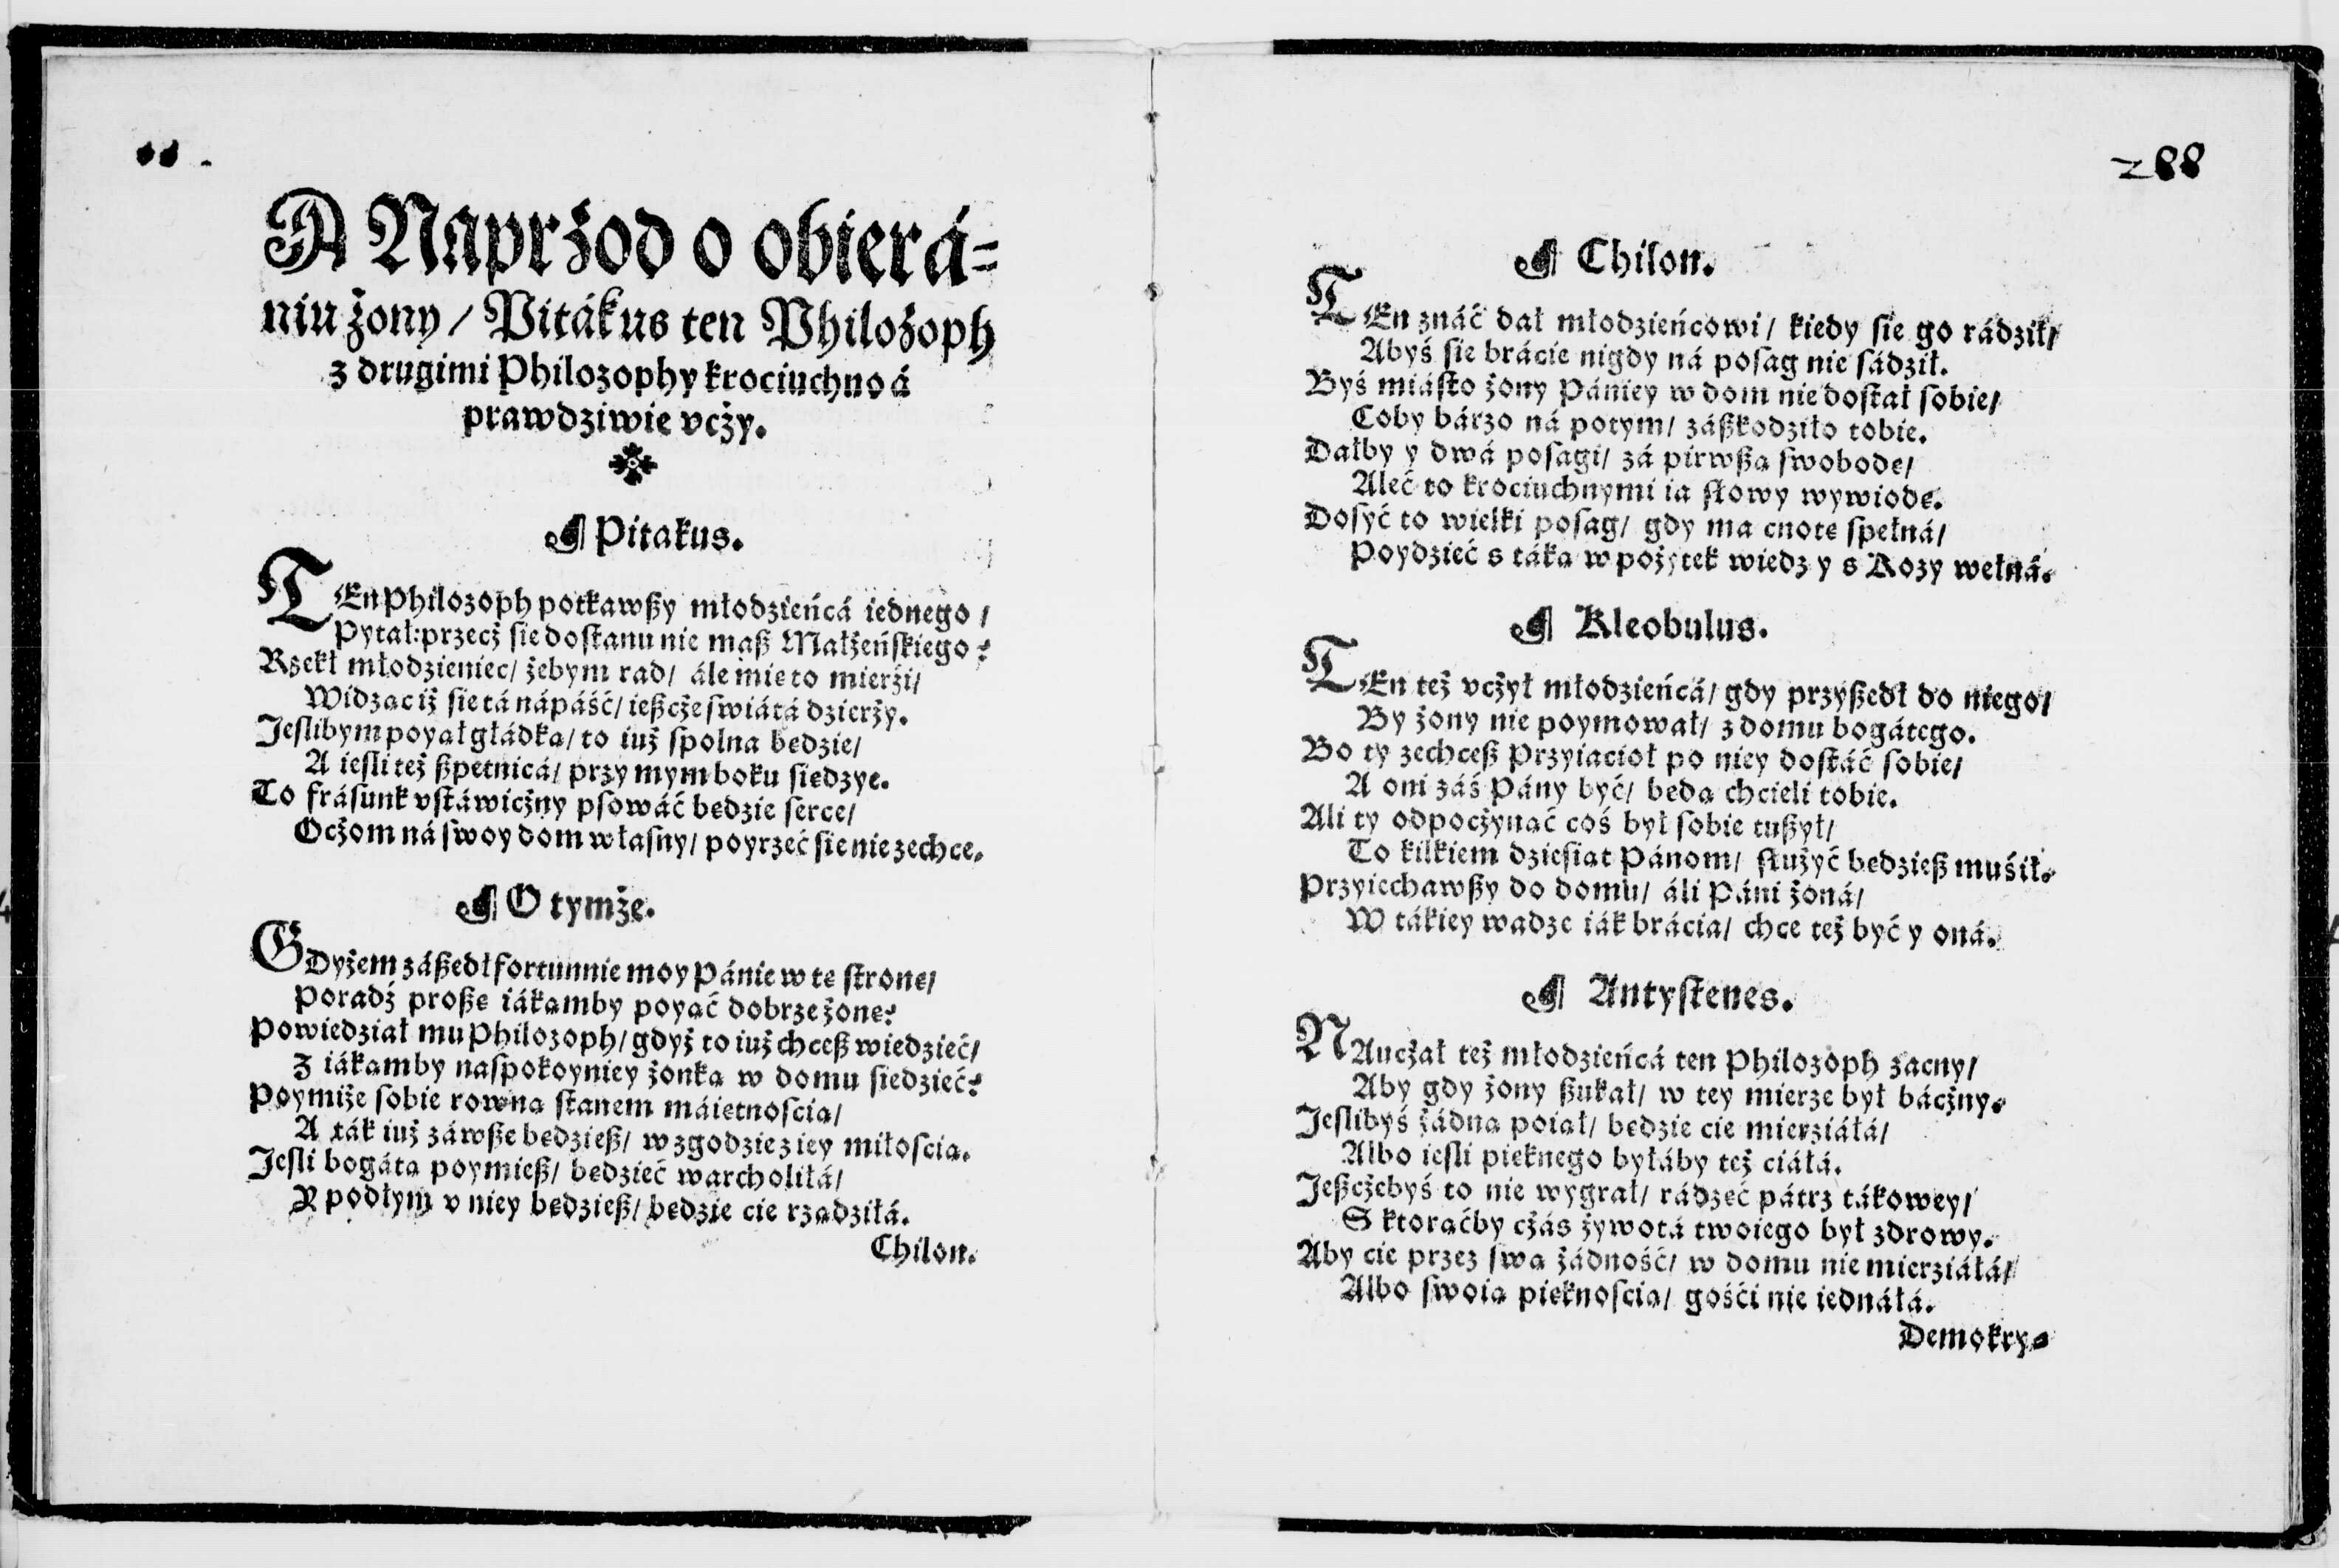 A Náprżod o obierá=
niu żony / Pitákus ten Philożoph
z drugimi Philozophy krociuchno á
prawdziwie vcży.
¶ Pitakus.
TEn Philozoph potkawßy młodzieńcá iednego /
Pytał: przecż sie do stanu nie maß Małżeńſkiego?
Rzekł młodzieniec / żebym rad / ále mie to mierźi /
Widzac iż sie tá nápáść / ießcże ſwiátá dzierży.
Jeſlibym poyał głádka / to iuż ſpolna bedzie /
A ieſli też ßpetnicá / przy mym boku siedzye.
To fráſunk vſtáwicżny pſowáć bedzie ſerce /
Ocżom ná ſwoy dom własny / poyrzeć sie nie zechce.
¶ O tymże.
GDyżem záßedł fortunnie moy Pánie w te ſtrone /
Poradź proße iákamby poyać dobrze żone?
Powiedział mu Philozoph / gdyż to iuż chceß wiedzieć /
Z iákamby naſpokoyniey żonka w domu siedzieć?
Poymiże ſobie rowna ſtanem máietnoſcia /
A ták iuż záwße bedzieß / w zgodzie z iey miłoſcia.
Jeſli bogáta poymieß / bedzieć warcholiłá /
Y podłym v niey bedzieß / bedzie cie rzadziłá.
Chilon.
288
¶ Chilon.
TEn znáć dał młodzieńcowi / kiedy sie go rádził /
Abyś sie brácie nigdy ná poſag nie sádził.
Byś miáſto żony Pániey w dom nie doſtał ſobie /
Coby bárzo ná potym / záßkodziło tobie.
Dałby y dwá poſagi / zá pirwßa ſwobode /
Aleć to krociuchnymi ia ſłowy wywiode.
Dosyć to wielki poſag / gdy ma cnote ſpełná /
Poydzieć s táka w pożytek wiedz y s Kozy wełná.
¶ Kleobulus.
TEn też vcżył młodzieńcá / gdy przyßedł do niego /
By żony nie poymował / z domu bogátego.
Bo ty zechceß Przyiacioł po niey doſtáć ſobie /
A oni záś Pány być / beda chcieli tobie.
Ali ty odpocżynać coś był ſobie tußył /
To kilkiem dzieſiat Pánom / ſłużyć bedzieß muśił.
Przyiechawßy do domu / áli Páni żoná /
W tákiey wadze iák brácia / chce też być y oná.
¶ Antyſtenes.
NAucżał też młodzieńcá ten Philozoph zacny /
Aby gdy żony ßukał / w tey mierze był bácżny.
Jeſlibyś żádna poiał / bedzie cie mierziáłá /
Albo ieſli pieknego byłáby też ciáłá.
Jeßcżebyś to nie wygrał / rádzeć pátrz tákowey /
S ktoraćby cżás żywotá twoiego był zdrowy.
Aby cie przez ſwa żádność / w domu nie mierziáłá /
Albo ſwoia pieknoſcia / gośći nie iednáłá.
Demokry=